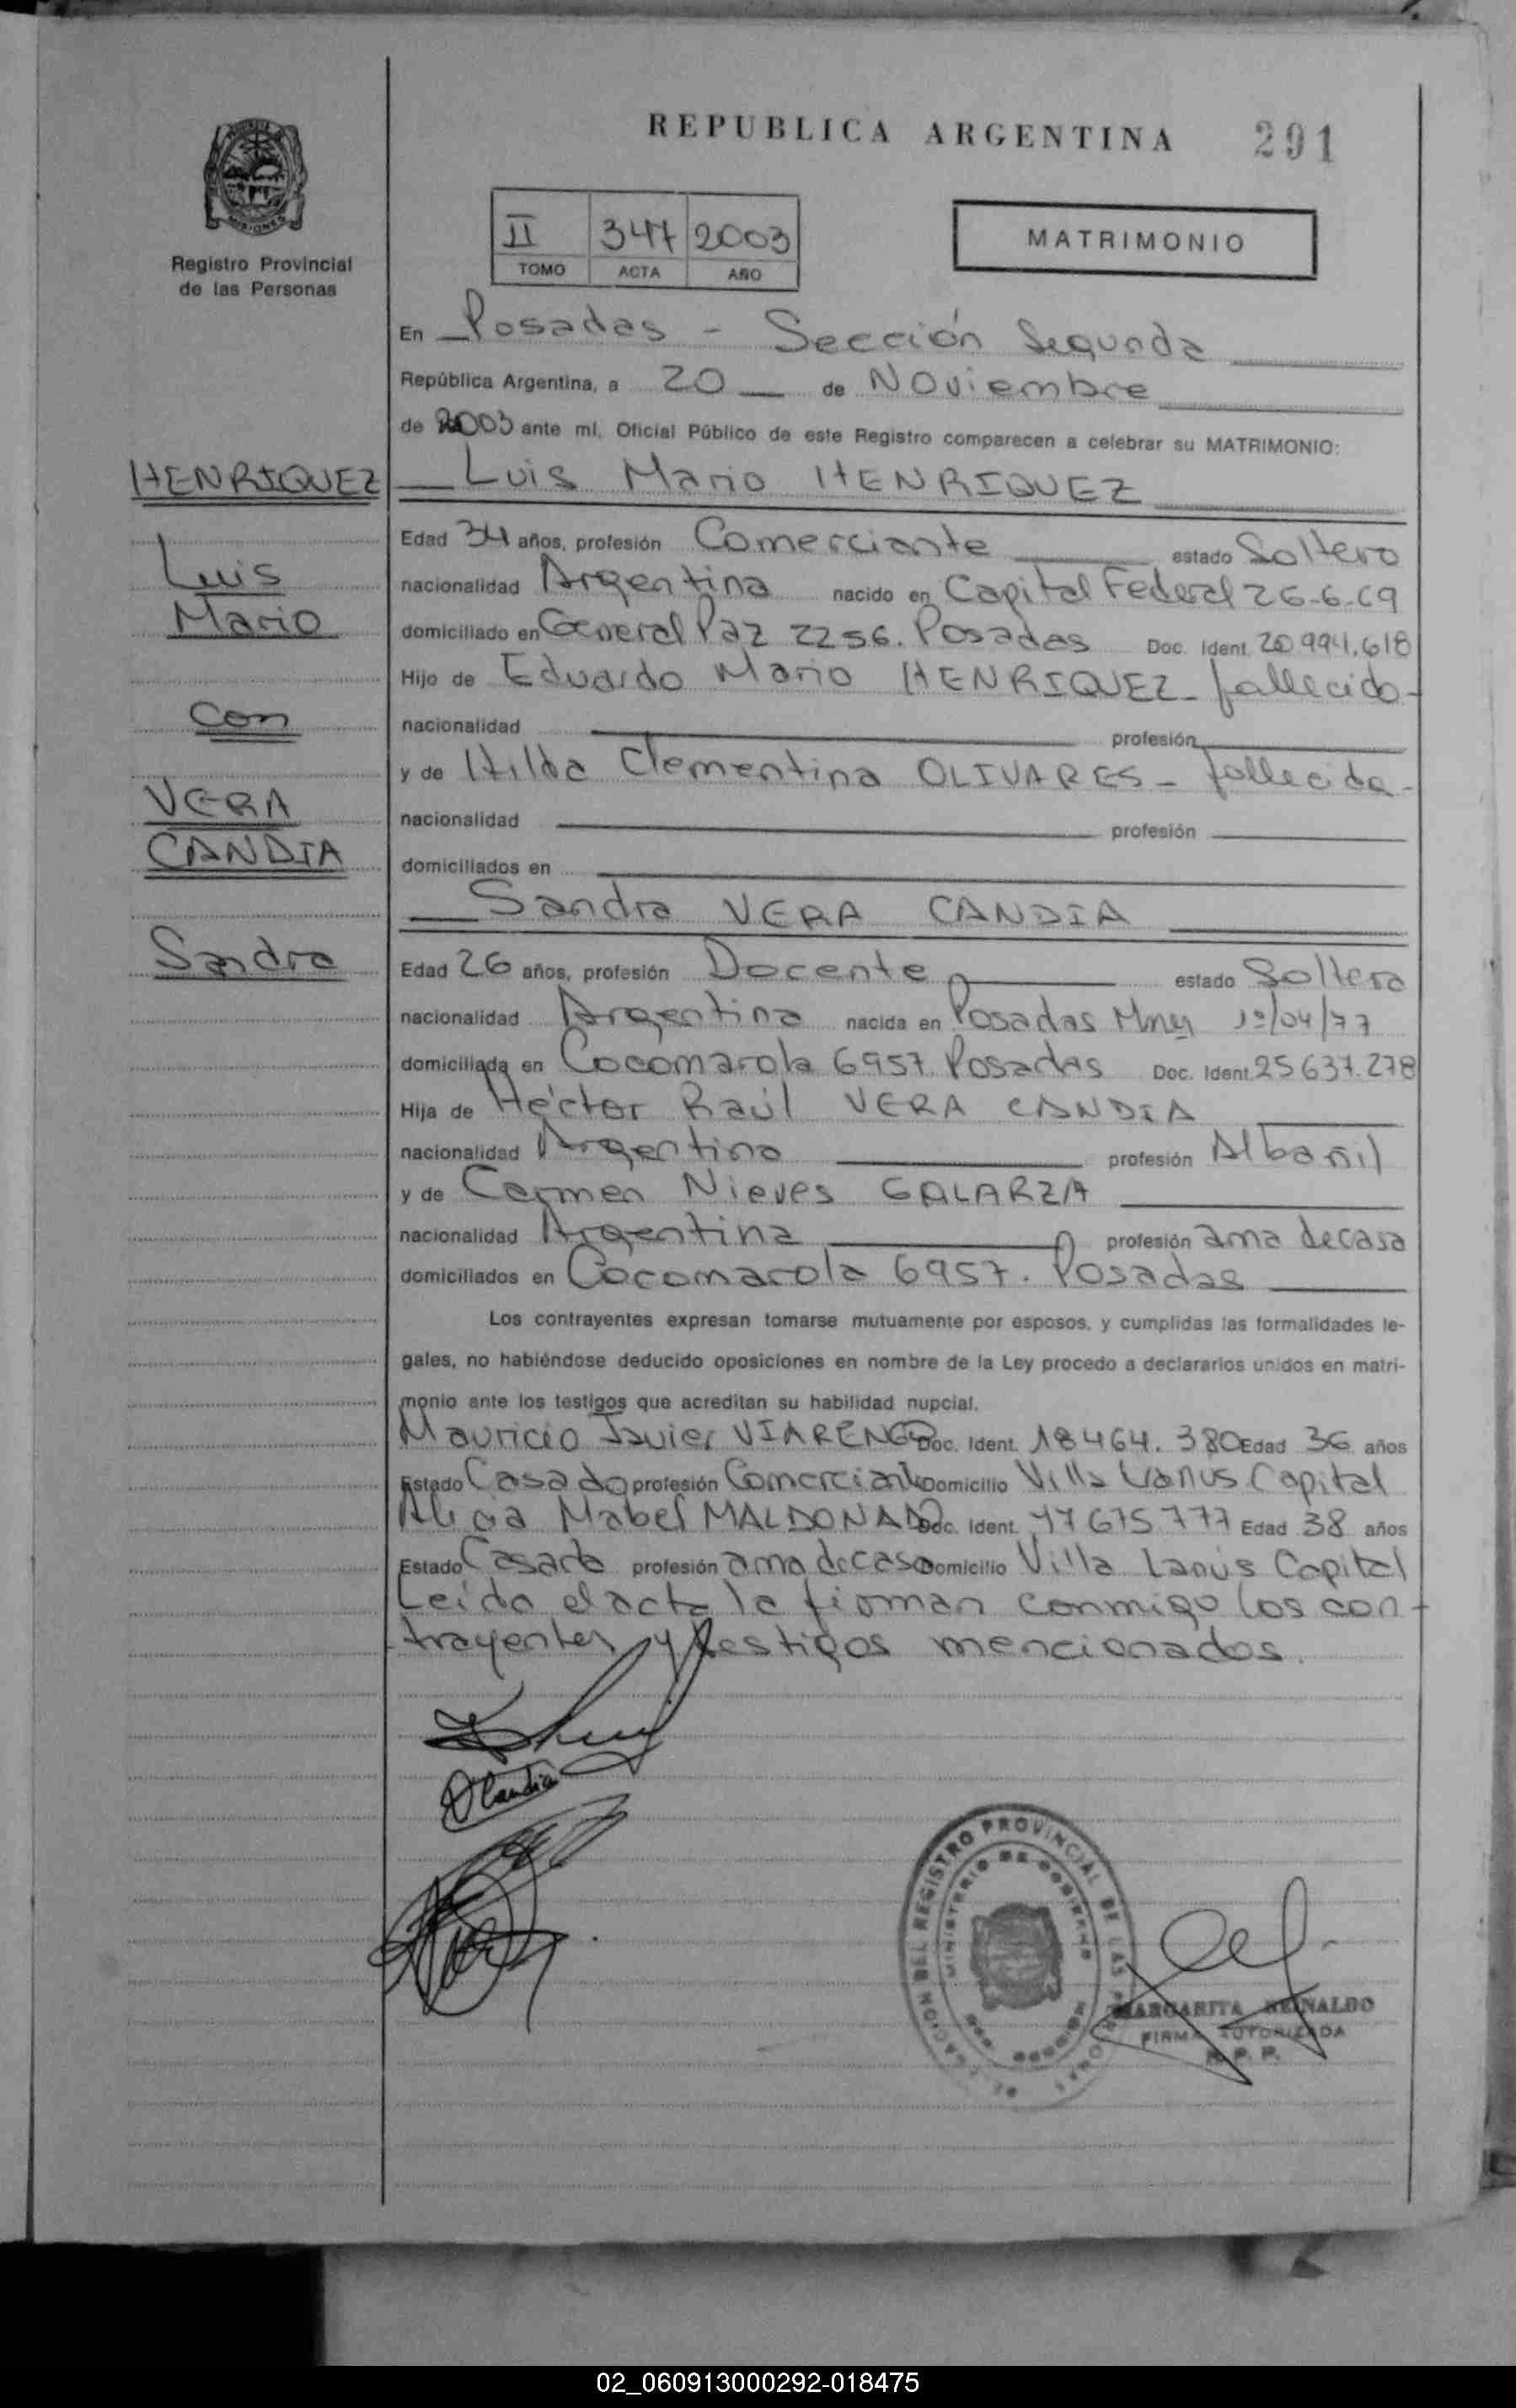 REPUBLICA ARGENTINA 291
II 347 2003
TOMO ACTA AÑO
MATRIMONIO
Registro Provincial
de las Personas
En Posadas - Sección Segunda
República Argentina, a 20 de Noviembre
de 2003 ante mí, Oficial Público de este Registro comparecen a celebrar su MATRIMONIO:
HENRIQUEZ
Luis
Mario
con
VERA
CANDIA
Sandra
Luis Mario HENRIQUEZ
Edad 34 años, profesión Comerciante estado Soltero
nacionalidad Argentina nacido en Capital Federal 26-6-69
domiciliado en General Paz 2256. Posadas Doc. Ident. 20.991.618
Hijo de Eduardo Mario HENRIQUEZ - fallecido -
nacionalidad profesión
y de Hilda Clementina OLIVARES - fallecida -
nacionalidad profesión
domiciliados en
Sandra VERA CANDIA
Edad 26 años, profesión Docente estado Soltera
nacionalidad Argentina nacida en Posadas Mnes 1º/04/77
domiciliada en Cocomarola 6957 Posadas Doc. Ident. 25637.278
Hija de Héctor Raúl VERA CANDIA
nacionalidad Argentina profesión Albañil
y de Carmen Nieves GALARZA
nacionalidad Argentina profesión ama de casa
domiciliados en Cocomarola 6957. Posadas
Los contrayentes expresan tomarse mutuamente por esposos, y cumplidas las formalidades le-
gales, no habiéndose deducido oposiciones en nombre de la Ley procedo a declararlos unidos en matri-
monio ante los testigos que acreditan su habilidad nupcial.
Mauricio Javier VIARENGO Doc. Ident. 18464.380 Edad 36 años
Estado Casado profesión Comerciante Domicilio Villa Lanus Capital
Alicia Mabel MALDONADO Doc. Ident. 17675777 Edad 38 años
Estado Casada profesión ama de casa Domicilio Villa Lanús Capital
Leída el acta la firman conmigo los con-
trayentes y testigos mencionados.
DEL REGISTRO PROVINCIAL DE LAS
MINISTERIO DE GOBIERNO
MARGARITA REINALDO
FIRMA AUTORIZADA
R. P. P.
02_060913000292-018475